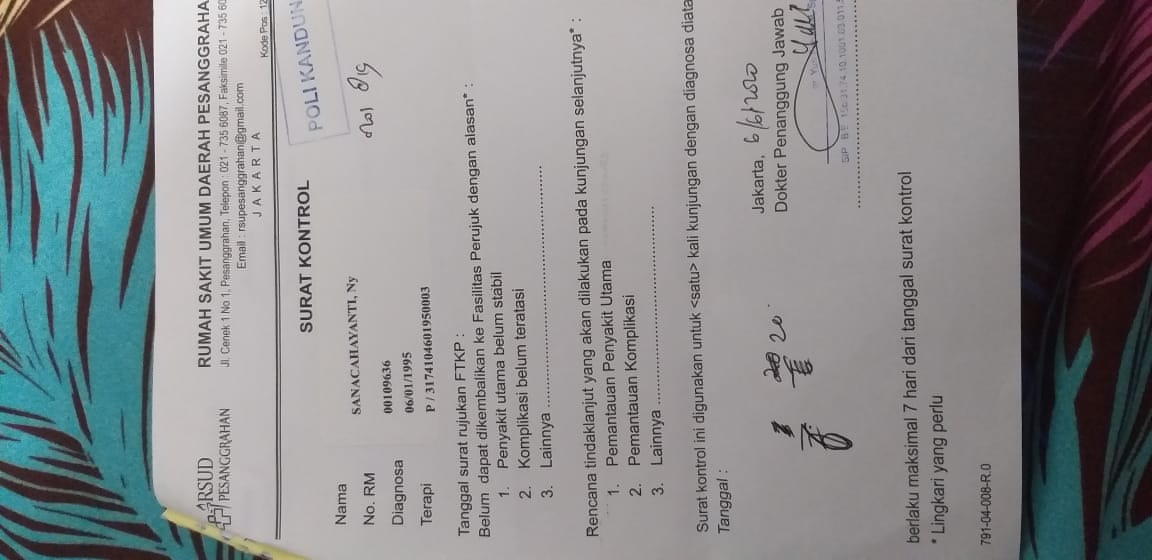 RSUD
PESANGGRAHAN
RUMAH SAKIT UMUM DAERAH PESANGGRAHA
Jl. Cenek 1 No 1, Pesanggrahan, Telepon : 021 - 735 6087, Faksimile 021 - 735 60
Email : rsupesanggrahan@gmail.com
J A K A R T A
Kode Pos : 12
SURAT KONTROL
POLI KANDUN
Nama SANACAHAYANTI, Ny
No. RM 00109636
Diagnosa 06/01/1995
Terapi P / 3174104601950003
Tanggal surat rujukan FTKP :
Belum dapat dikembalikan ke Fasilitas Perujuk dengan alasan* :
1. Penyakit utama belum stabil
2. Komplikasi belum teratasi
3. Lainnya
Rencana tindaklanjut yang akan dilakukan pada kunjungan selanjutnya* :
1. Pemantauan Penyakit Utama
2. Pemantauan Komplikasi
3. Lainnya
Surat kontrol ini digunakan untuk <satu> kali kunjungan dengan diagnosa diata
Tanggal :
Jakarta, 6/6/2020
Dokter Penanggung Jawab
20
berlaku maksimal 7 hari dari tanggal surat kontrol
* Lingkari yang perlu
791-04-008-R.0